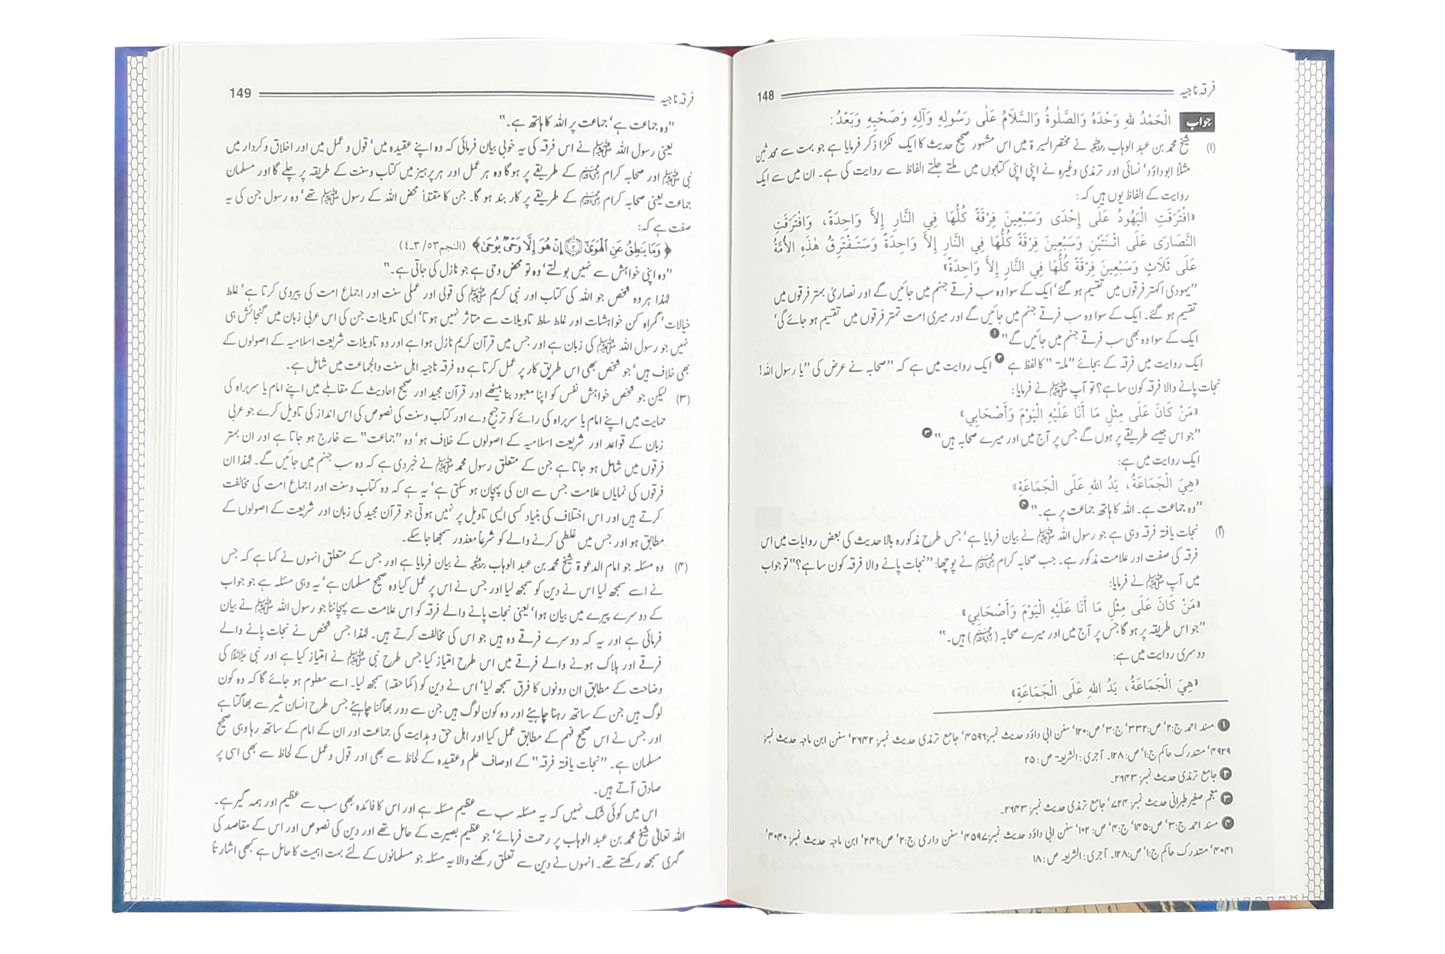 148 فرقہ ناجیہ
جواب الْحَمْدُ للهِ وَحْدَهُ وَالصَّلٰوةُ وَالسَّلَامُ عَلٰی رَسُولِهِ وَآلِهِ وَصَحْبِهِ وَبَعْدُ:
(۱) شیخ محمد بن عبد الوہاب رحمہ اللہ نے مختصر السیرۃ میں اس مشہور صحیح حدیث کا ایک ٹکڑا ذکر فرمایا ہے جو بہت سے محدثین
مثلاً ابوداؤد‘ نسائی اور ترمذی وغیرہ نے اپنی اپنی کتابوں میں ملتے جلتے الفاظ سے روایت کی ہے۔ ان میں سے ایک
روایت کے الفاظ یوں ہیں کہ:
«افْتَرَقَتِ الْيَهُودُ عَلَى إِحْدَى وَسَبْعِينَ فِرْقَةً كُلُّهَا فِي النَّارِ إِلاَّ وَاحِدَةً، وَافْتَرَقَتِ
النَّصَارَى عَلَى اثْنَتَيْنِ وَسَبْعِينَ فِرْقَةً كُلُّهَا فِي النَّارِ إِلاَّ وَاحِدَةً وَسَتَفْتَرِقُ هٰذِهِ الأُمَّةُ
عَلَى ثَلاَثٍ وَسَبْعِينَ فِرْقَةً كُلُّهَا فِي النَّارِ إِلاَّ وَاحِدَةً»
”یہودی اکہتر فرقوں میں تقسیم ہو گئے‘ ایک کے سوا وہ سب فرقے جہنم میں جائیں گے اور نصاریٰ بہتر فرقوں میں
تقسیم ہو گئے۔ ایک کے سوا وہ سب فرقے جہنم میں جائیں گے اور میری امت تہتر فرقوں میں تقسیم ہو جائے گی‘
ایک کے سوا وہ بھی سب فرقے جہنم میں جائیں گے“ ۱
ایک روایت میں فرقہ کے بجائے ”ملۃ“ کا لفظ ہے ۲ ایک روایت میں ہے کہ ”صحابہ نے عرض کی ”یا رسول اللہ!
نجات پانے والا فرقہ کون سا ہے؟ تو آپ ﷺ نے فرمایا:
«مَنْ كَانَ عَلَى مِثْلِ مَا أَنَا عَلَيْهِ الْيَوْمَ وَأَصْحَابِي»
”جو اس جیسے طریقے پر ہوں گے جس پر آج میں اور میرے صحابہ ہیں“ ۳
ایک روایت میں ہے:
«هِيَ الْجَمَاعَةُ، يَدُ اللهِ عَلَى الْجَمَاعَةِ»
”وہ جماعت ہے۔ اللہ کا ہاتھ جماعت پر ہے۔“ ۴
(۲) نجات یافتہ فرقہ وہی ہے جو رسول اللہ ﷺ نے بیان فرمایا ہے‘ جس طرح مذکورہ بالا حدیث کی بعض روایات میں اس
فرقہ کی صفت اور علامت مذکور ہے۔ جب صحابہ کرام نے پوچھا: ”نجات پانے والا فرقہ کون سا ہے؟“ تو جواب
میں آپ ﷺ نے فرمایا:
«مَنْ كَانَ عَلَى مِثْلِ مَا أَنَا عَلَيْهِ الْيَوْمَ وَأَصْحَابِي»
”جو اس طریقہ پر ہو گا جس پر آج میں اور میرے صحابہ ہیں۔“
دوسری روایت میں ہے:
«هِيَ الْجَمَاعَةُ، يَدُ اللهِ عَلَى الْجَمَاعَةِ»
۱ مسند احمد ج:۲‘ ص:۳۳۲‘ ج:۳‘ ص:۱۲۰‘ سنن ابی داؤد حدیث نمبر:۴۵۹۶‘ جامع ترمذی حدیث نمبر: ۲۶۴۲‘ سنن ابن ماجہ حدیث نمبر:
مستدرک حاکم ج:۱‘ ص:۱۲۸۔ آجری: الشریعہ ص: ۲۵
۲ جامع ترمذی حدیث نمبر: ۲۶۴۳۔
۳ معجم صغیر طبرانی حدیث نمبر: ۷۲۴‘ جامع ترمذی حدیث نمبر: ۲۶۴۳۔
۴ مسند احمد ج:۳‘ ص:۱۴۵‘ ج:۴‘ ص: ۱۰۲‘ سنن ابی داؤد حدیث نمبر:۴۵۹۷‘ سنن دارمی ج:۲‘ ص:۲۴۱‘ ابن ماجہ حدیث نمبر: ۴۰۴۰‘
مستدرک حاکم ج:۱‘ ص:۱۲۸۔ آجری: الشریعہ ص: ۱۸
149 فرقہ ناجیہ
”وہ جماعت ہے‘ جماعت پر اللہ کا ہاتھ ہے۔“
یعنی رسول اللہ ﷺ نے اس فرقہ کی یہ خوبی بیان فرمائی کہ وہ اپنے عقیدہ میں‘ قول و عمل میں اور اخلاق و کردار میں
نبی ﷺ اور صحابہ کرام کے طریقے پر ہو گا وہ ہر عمل اور ہر پرہیز میں کتاب و سنت کے طریقہ پر چلے گا اور مسلمان
جماعت یعنی صحابہ کرام کے طریقے پر کار بند ہو گا۔ جن کا مقتدا محض اللہ کے رسول ﷺ تھے‘ وہ رسول جن کی یہ
صفت ہے کہ:
﴿وَمَا يَنطِقُ عَنِ الْهَوَىٰ ۞ إِنْ هُوَ إِلَّا وَحْيٌ يُوحَىٰ﴾ (النجم ۵۳/ ۳۔۴)
”وہ اپنی خواہش سے نہیں بولتے‘ وہ تو محض وحی ہے جو نازل کی جاتی ہے۔“
لہٰذا ہر وہ شخص جو اللہ کی کتاب اور نبی کریم ﷺ کی قولی اور عملی سنت اور اجماع امت کی پیروی کرتا ہے‘ غلط
خیالات‘ گمراہ کن خواہشات اور غلط سلط تاویلات سے متاثر نہیں ہوتا‘ ایسی تاویلات جن کی اس عربی زبان میں گنجائش ہی
نہیں جو رسول اللہ ﷺ کی زبان ہے اور جس میں قرآن کریم نازل ہوا ہے اور وہ تاویلات شریعت اسلامیہ کے اصولوں کے
بھی خلاف ہیں‘ جو شخص بھی اس طریق کار پر عمل کرتا ہے وہ فرقہ ناجیہ اہل سنت والجماعت میں شامل ہے۔
(۳) لیکن جو شخص خواہش نفس کو اپنا معبود بنا بیٹھے اور قرآن مجید اور صحیح احادیث کے مقابلے میں اپنے امام یا سربراہ کی
حمایت میں اپنے امام یا سربراہ کی رائے کو ترجیح دے اور کتاب و سنت کی نصوص کی اس انداز کی تاویل کرے جو عربی
زبان کے قواعد اور شریعت اسلامیہ کے اصولوں کے خلاف ہو‘ وہ ”جماعت“ سے خارج ہو جاتا ہے اور ان بہتر
فرقوں میں شامل ہو جاتا ہے جن کے متعلق رسول محمد ﷺ نے خبر دی ہے کہ وہ سب جہنم میں جائیں گے۔ لہٰذا ان
فرقوں کی نمایاں علامت جس سے ان کی پہچان ہو سکتی ہے‘ یہ ہے کہ وہ کتاب و سنت اور اجماع امت کی مخالفت
کرتے ہیں اور اس اختلاف کی بنیاد کسی ایسی تاویل پر نہیں ہوتی جو قرآن مجید کی زبان اور شریعت کے اصولوں کے
مطابق ہو اور جس میں غلطی کرنے والے کو شرعاً معذور سمجھا جا سکے۔
(۴) وہ مسئلہ جو امام الدعوۃ شیخ محمد بن عبد الوہاب رحمہ اللہ نے بیان فرمایا ہے اور جس کے متعلق انہوں نے کہا ہے کہ جس
نے اسے سمجھ لیا اس نے دین کو سمجھ لیا اور جس نے اس پر عمل کیا وہ صحیح مسلمان ہے‘ یہ وہی مسئلہ ہے جو جواب
کے دوسرے پیرے میں بیان ہوا‘ یعنی نجات پانے والے فرقہ کو اس علامت سے پہچاننا جو رسول اللہ ﷺ نے بیان
فرمائی ہے اور یہ کہ دوسرے فرقے وہ ہیں جو اس کی مخالفت کرتے ہیں۔ لہٰذا جس شخص نے نجات پانے والے
فرقے اور ہلاک ہونے والے فرقے میں اس طرح امتیاز کیا جس طرح نبی ﷺ نے امتیاز کیا ہے اور نبی ﷺ کی
وضاحت کے مطابق ان دونوں کا فرق سمجھ لیا‘ اس نے دین کو (کما حقہ) سمجھ لیا۔ اسے معلوم ہو جائے گا کہ وہ کون
لوگ ہیں جن کے ساتھ رہنا چاہیئے اور وہ کون لوگ ہیں جن سے دور بھاگنا چاہیئے جس طرح انسان شیر سے بھاگتا ہے
اور جس نے اس صحیح فہم کے مطابق عمل کیا اور اہل حق و ہدایت کی جماعت اور ان کے امام کے ساتھ رہا وہی صحیح
مسلمان ہے۔ ”نجات یافتہ فرقہ“ کے اوصاف علم و عقیدہ کے لحاظ سے بھی اور قول و عمل کے لحاظ سے بھی اسی پر
صادق آتے ہیں۔
اس میں کوئی شک نہیں کہ یہ مسئلہ سب سے عظیم مسئلہ ہے اور اس کا فائدہ بھی سب سے عظیم اور ہمہ گیر ہے۔
اللہ تعالٰی شیخ محمد بن عبد الوہاب پر رحمت فرمائے‘ جو عظیم بصیرت کے حامل تھے اور دین کی نصوص اور اس کے مقاصد کی
گہری سمجھ رکھتے تھے۔ انہوں نے دین سے تعلق رکھنے والا یہ مسئلہ جو مسلمانوں کے لئے بہت اہمیت کا حامل ہے کبھی اشارتاً